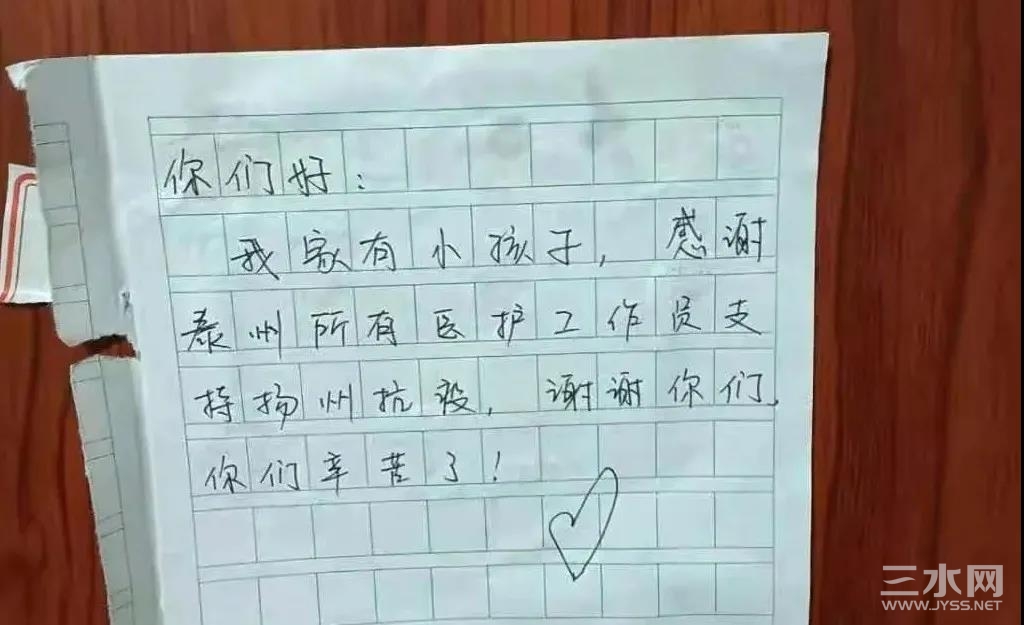 你们好:
我家有小孩子,感谢
泰州所有医护工作员支
持扬州抗疫,谢谢你们,
你们辛苦了!
三水网
WWW.JYSS.NET